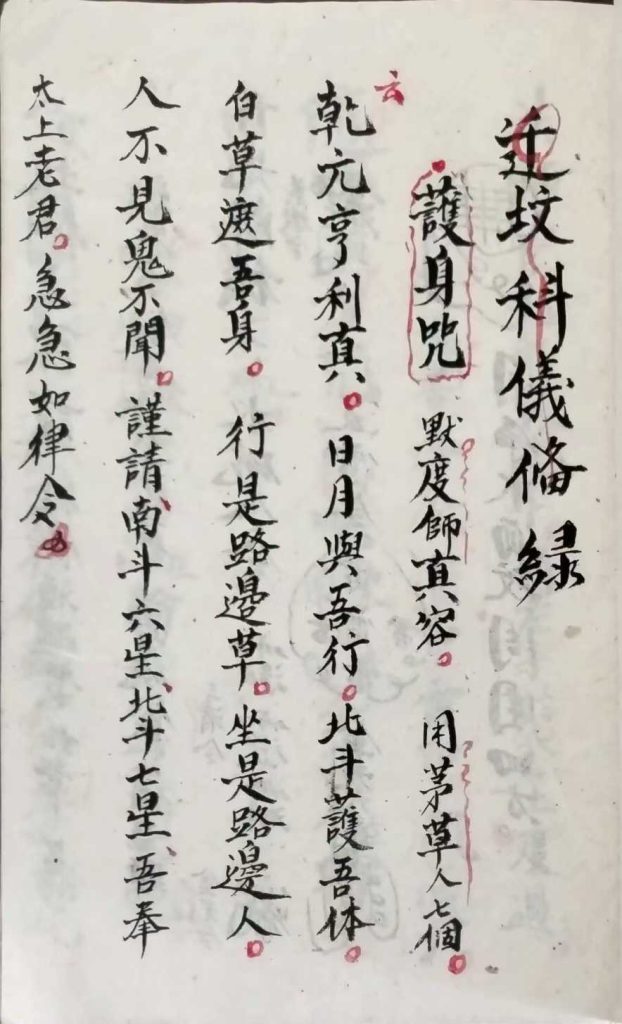 迁坟科儀俻緑
護身咒 默度師真容。 用茅草人七個。
云
乾元亨利真。日月與吾行。北斗護吾体。
白草遮吾身。行是路邊草。坐是路邊人。
人不見鬼不聞。謹請南斗六星、北斗七星、吾奉
太上老君。急急如律令。